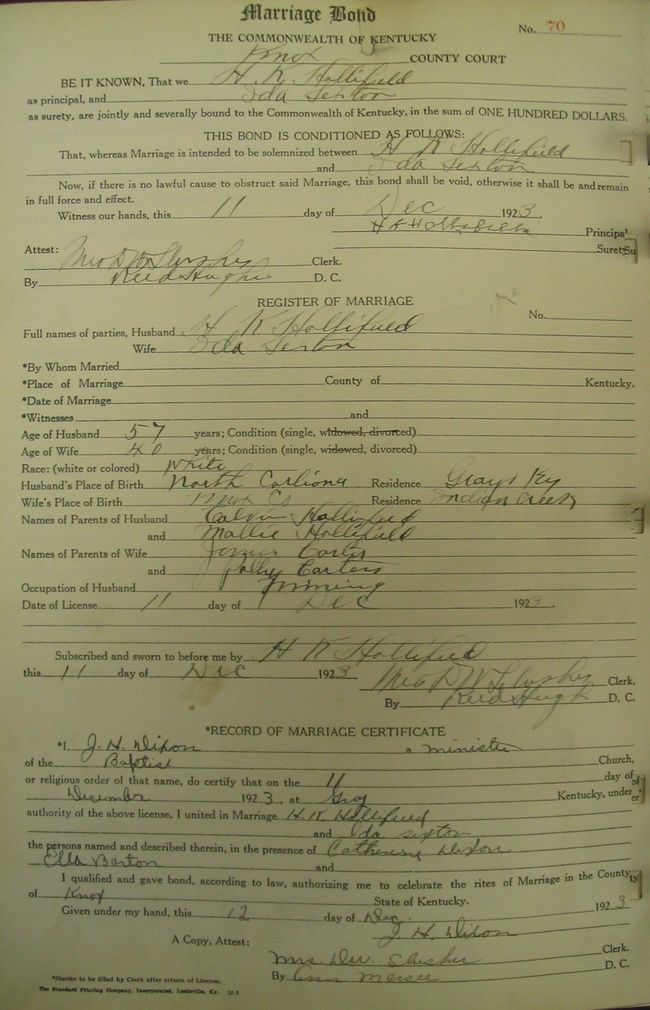 Marriage Bond
No. 70
THE COMMONWEALTH OF KENTUCKY
Knox COUNTY COURT
BE IT KNOWN, That we H K Hollifield
as principal, and Ida Sexton
as surety, are jointly and severally bound to the Commonwealth of Kentucky, in the sum of ONE HUNDRED DOLLARS.
THIS BOND IS CONDITIONED AS FOLLOWS:
That, whereas Marriage is intended to be solemnized between H K Hollifield
and Ida Sexton
Now, if there is no lawful cause to obstruct said Marriage, this bond shall be void, otherwise it shall be and remain
in full force and effect.
Witness our hands, this 11 day of Dec 1923.
Principal
Surety
Attest: Clerk.
By D. C.
REGISTER OF MARRIAGE
No.
Full names of parties, Husband H K Hollifield
Wife Ida Sexton
*By Whom Married
*Place of Marriage County of Kentucky.
*Date of Marriage
*Witnesses and
Age of Husband 57 years; Condition (single, widowed, divorced)
Age of Wife 40 years; Condition (single, widowed, divorced)
Race: (white or colored) White
Husband's Place of Birth North Carliona Residence Grays Ky
Wife's Place of Birth Knox Co Residence Indian Creek
Names of Parents of Husband Calvin Hollifield
and Mallie Hollifield
Names of Parents of Wife Carter
and Polly Carters
Occupation of Husband
Date of License 11 day of Dec 1923.
Subscribed and sworn to before me by H K Hollifield
this 11 day of Dec 1923
Clerk.
By D. C.
*RECORD OF MARRIAGE CERTIFICATE
*I, J. H. Dixon a minister
of the Baptist Church,
or religious order of that name, do certify that on the 11 day of
December 1923, at Gray Kentucky, under
authority of the above license, I united in Marriage H. K. Hollifield
and Ida Sexton
the persons named and described therein, in the presence of Catherine Dixon
Ella Barton and
I qualified and gave bond, according to law, authorizing me to celebrate the rites of Marriage in the County
of Knox State of Kentucky.
Given under my hand, this 12 day of Dec. 1923
J. H. Dixon
A Copy, Attest: Mrs. D.W. Slusher Clerk.
By D. C.
*Blanks to be filled by Clerk after return of License.
The Standard Printing Company, Incorporated, Louisville, Ky.